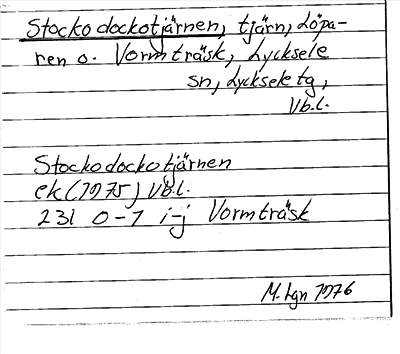 Stockodockotjärnen, tjärn, Löpa-
ren o. Vormträsk, Lycksele
sn, Lycksele tg,
Vb.l.
Stockodockotjärnen
ek (1975) Vb.l.
23I 0-1 i-j Vormträsk
M. Lgn 1976